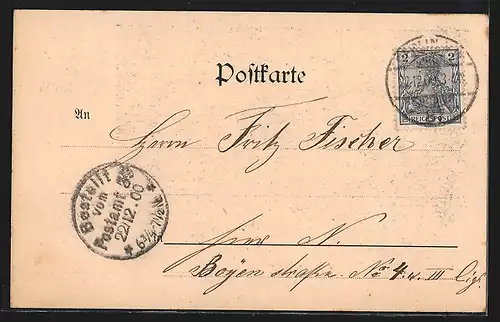 2
REICHSPOST
Postkarte
An
Herrn Fritz Fischer
Bestellt
vom
Postamt
22/12.00
in
hier N.
Boyen straße No 4. III